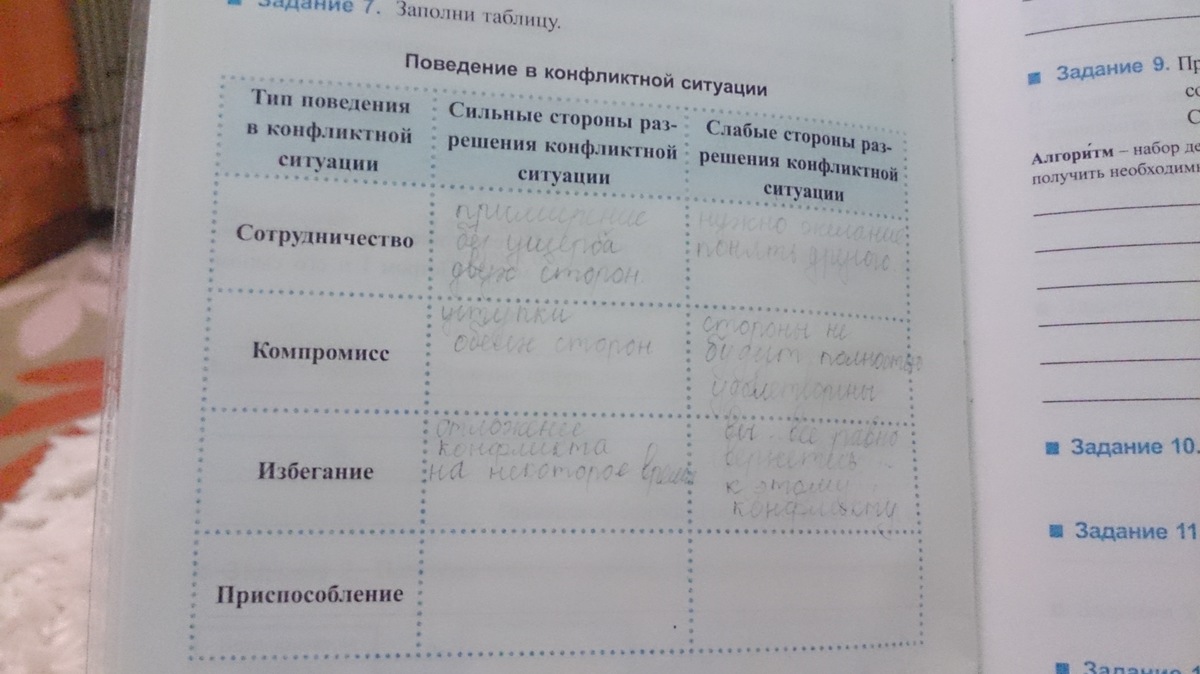 Задание 7. Заполни таблицу.
Поведение в конфликтной ситуации
Тип поведения
в конфликтной
ситуации
Сильные стороны раз-
решения конфликтной
ситуации
Слабые стороны раз-
решения конфликтной
ситуации
Сотрудничество
примирение
без ущерба
двух сторон
нужно желание
понять другого
Компромисс
уступки
обеих сторон
стороны не
будут полностью
Избегание
конфликта
на некоторое время
вы все равно
к этому
конфликту
Приспособление
Задание 9. Пр
со
С
Алгори́тм – набор де
получить необходимы
Задание 10.
Задание 11
Задание 1